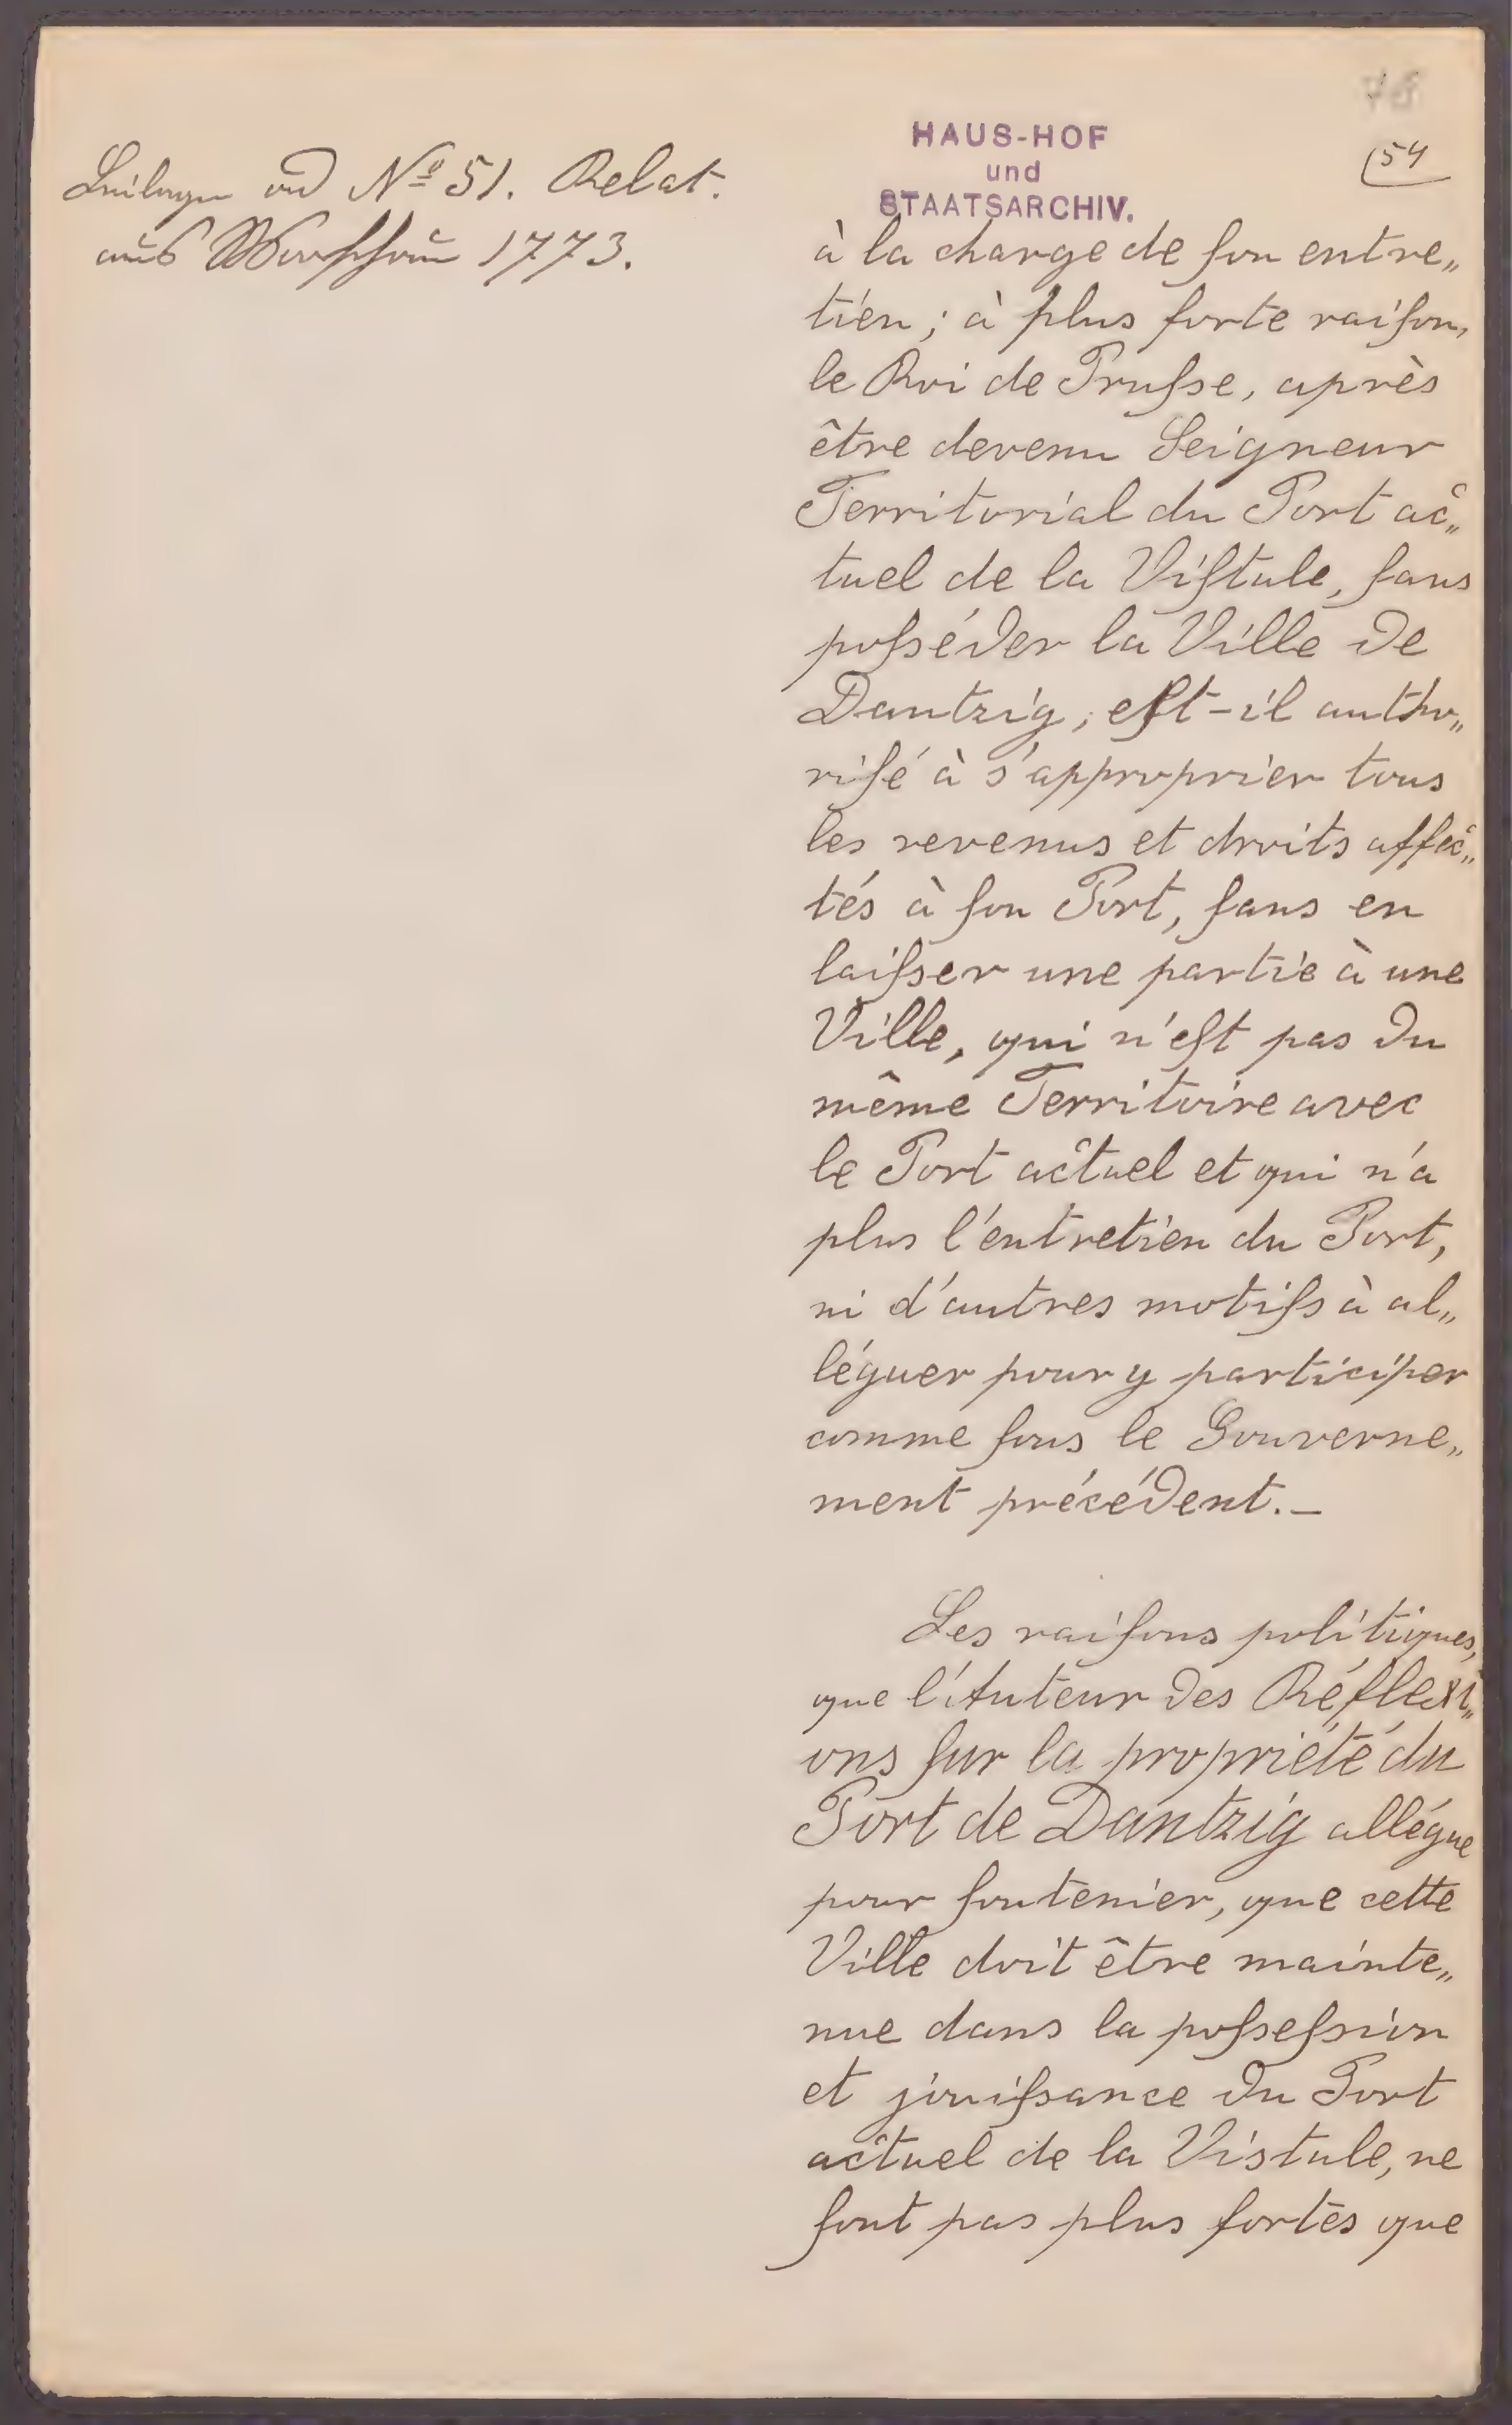 78
54
HAUS-HOF
und
STAATSARCHIV.
Beilagen ad Nº 51. Relat.
aus Warschau 1773.
à la charge de ſon entre„
tien; à plus forte raiſon,
le Roi de Pruſse, après
être devenu Seigneur
Territorial du Port ac„
tuel de la Viſtule, ſans
poſséder la Ville de
Dantzig, eſt-il autho„
riſé à s'approprier tous
les revenus et droits affec„
tés à ſon Port, ſans en
laiſser une partie à une
Ville, qui n'eſt pas du
même Territoire avec
le Port actuel et qui n'a
plus l'entretien du Port,
ni d'autres motifs à al„
léguer pour y participer
comme ſous le Gouverne„
ment précédent._
Les raiſons politiques,
que l'Auteur des Réflexi„
ons ſur la propriété du
Port de Dantzig allégue
pour ſoutenier, que cette
Ville doit être mainte„
nue dans la poſseſsion
et jouiſsance du Port
actuel de la Vistule, ne
ſont pas plus fortes que